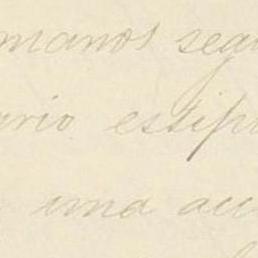 manos segu
ario estip
uma au